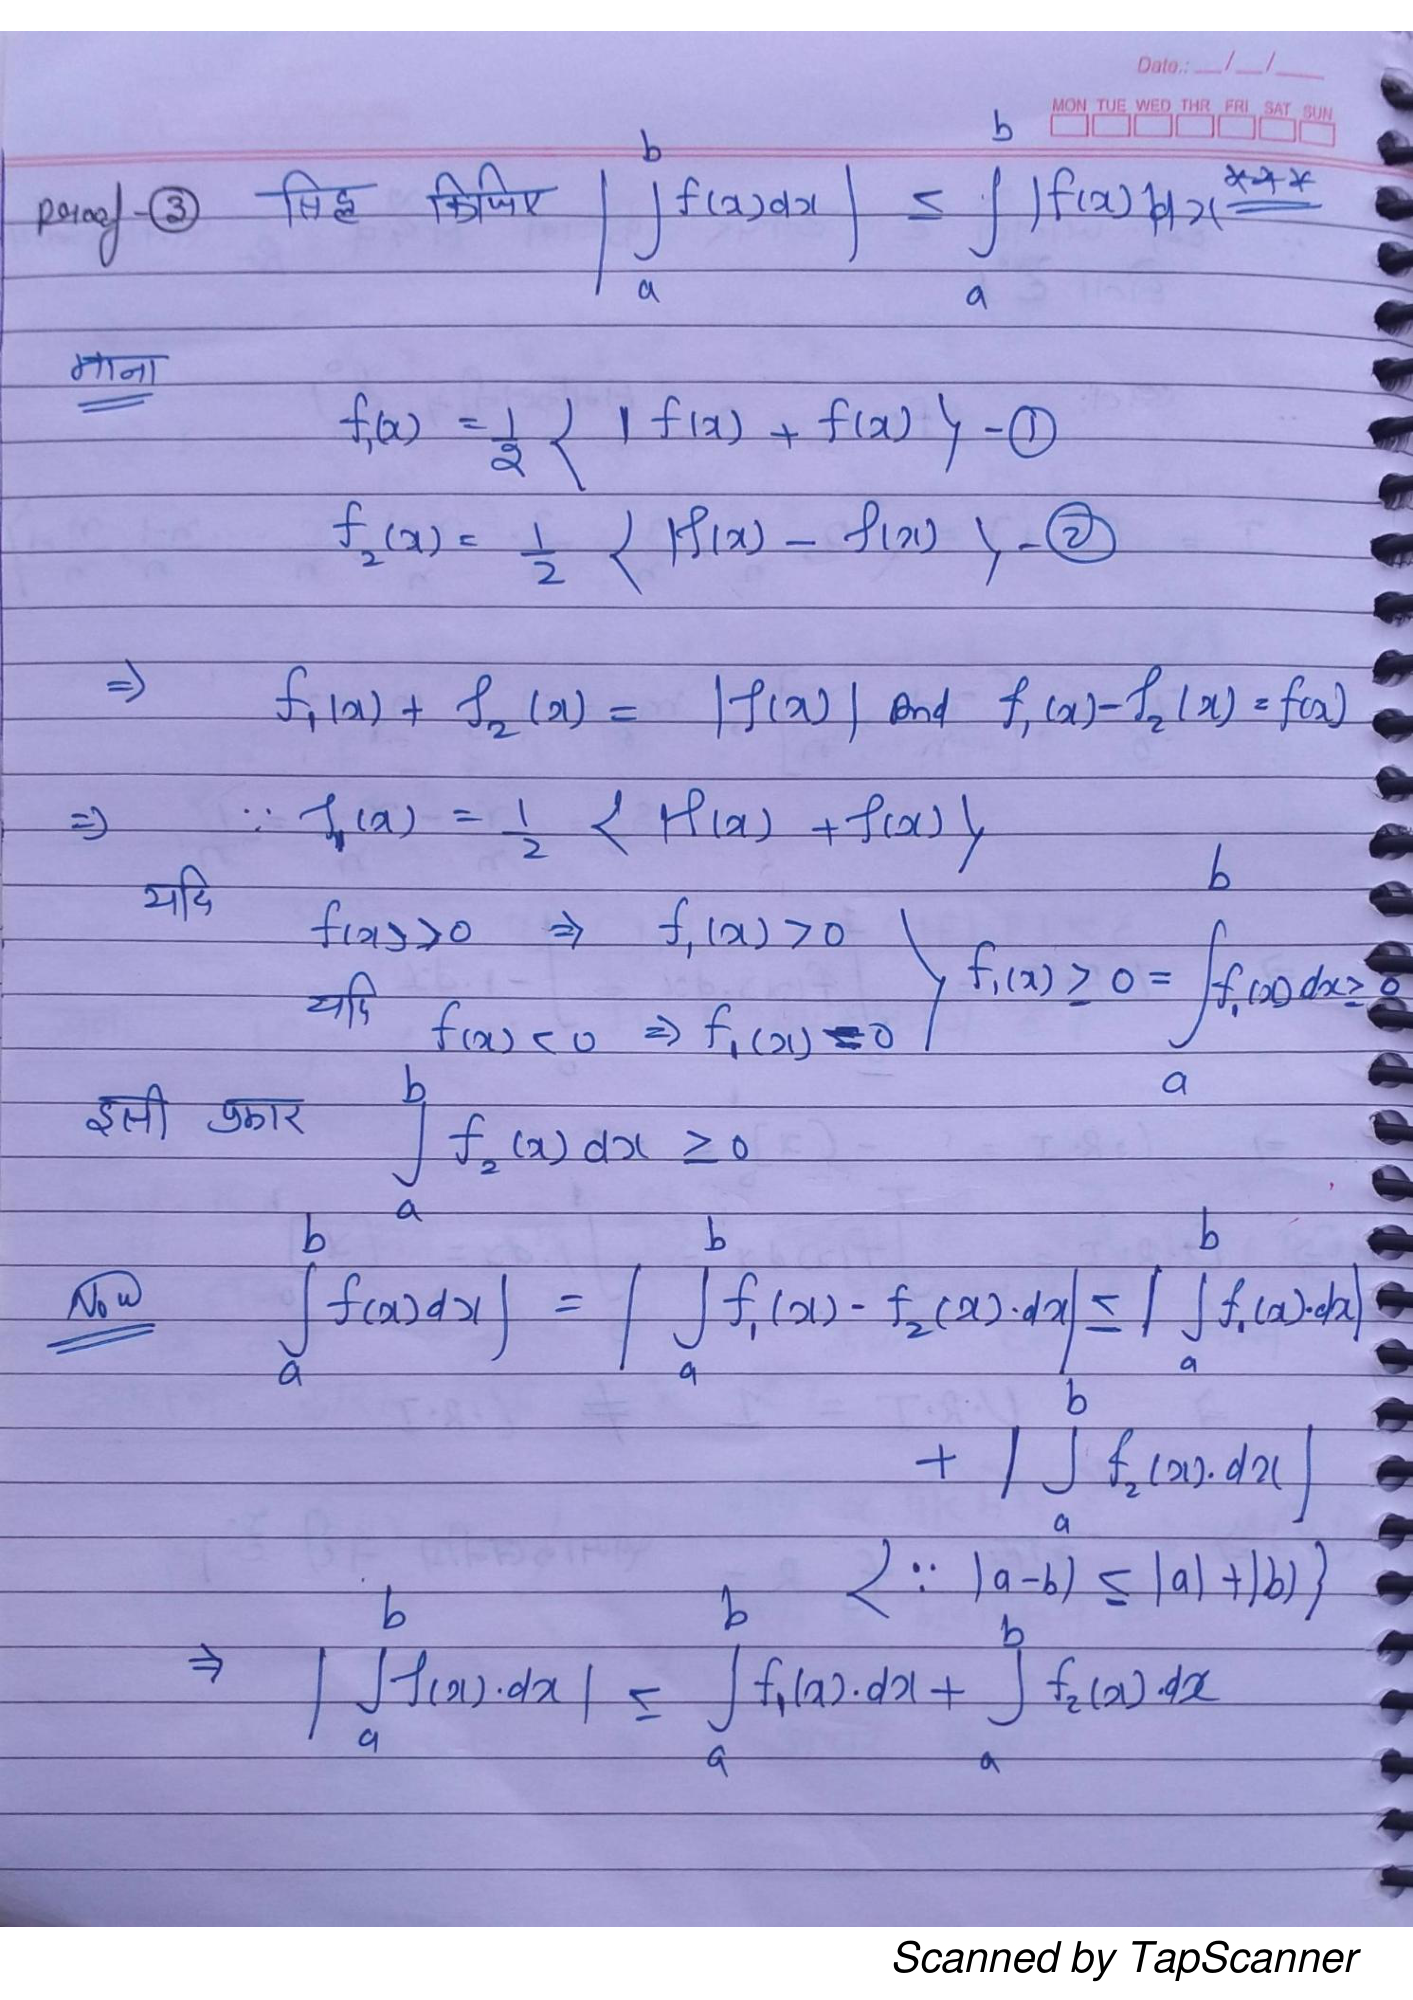 Date.: __/__/___
MON TUE WED THR FRI SAT SUN
Proof-③ सिद्ध किजिए |∫_a^b f(x)dx| ≤ ∫_a^b |f(x)|dx ***
माना
f₁(x) = 1/2 { |f(x) + f(x) } - ①
f₂(x) = 1/2 { |f(x) - f(x) } - ②
⇒ f₁(x) + f₂(x) = |f(x)| And f₁(x) - f₂(x) = f(x)
⇒ ∵ f₁(x) = 1/2 { |f(x) + f(x) }
यदि f(x) > 0 ⇒ f₁(x) > 0
यदि f(x) < 0 ⇒ f₁(x) = 0 } f₁(x) ≥ 0 = ∫_a^b f₁(x) dx ≥ 0
इसी प्रकार ∫_a^b f₂(x) dx ≥ 0
Now ∫_a^b f(x)dx| = |∫_a^b f₁(x) - f₂(x).dx| ≤ |∫_a^b f₁(x).dx|
+ |∫_a^b f₂(x).dx|
{ ∵ |a-b| ≤ |a| + |b| }
⇒ |∫_a^b f(x).dx| ≤ ∫_a^b f₁(x).dx + ∫_a^b f₂(x).dx
Scanned by TapScanner